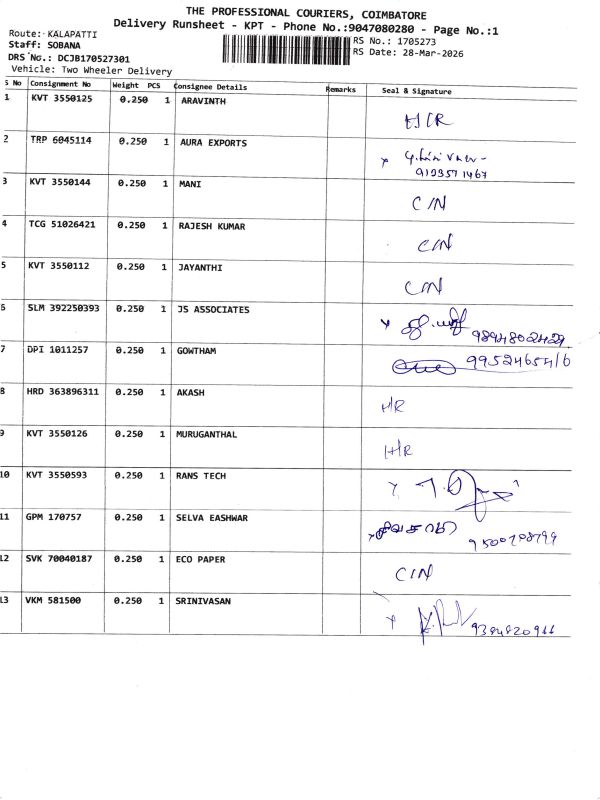 THE PROFESSIONAL COURIERS, COIMBATORE
Delivery Runsheet - KPT - Phone No.:9047080280 - Page No.:1
Route: KALAPATTI
Staff: SOBANA
DRS No.: DCJB170527301
Vehicle: Two Wheeler Delivery
RS No.: 1705273
RS Date: 28-Mar-2026
S No Consignment No Weight PCS Consignee Details Remarks Seal & Signature
1 KVT 3550125 0.250 1 ARAVINTH
2 TRP 6045114 0.250 1 AURA EXPORTS
3 KVT 3550144 0.250 1 MANI C/N
4 TCG 51026421 0.250 1 RAJESH KUMAR C/N
5 KVT 3550112 0.250 1 JAYANTHI C/N
6 SLM 392250393 0.250 1 JS ASSOCIATES
7 DPI 1011257 0.250 1 GOWTHAM
8 HRD 363896311 0.250 1 AKASH H/R
9 KVT 3550126 0.250 1 MURUGANTHAL H/R
10 KVT 3550593 0.250 1 RANS TECH
11 GPM 170757 0.250 1 SELVA EASHWAR
12 SVK 70040187 0.250 1 ECO PAPER C/N
13 VKM 581500 0.250 1 SRINIVASAN